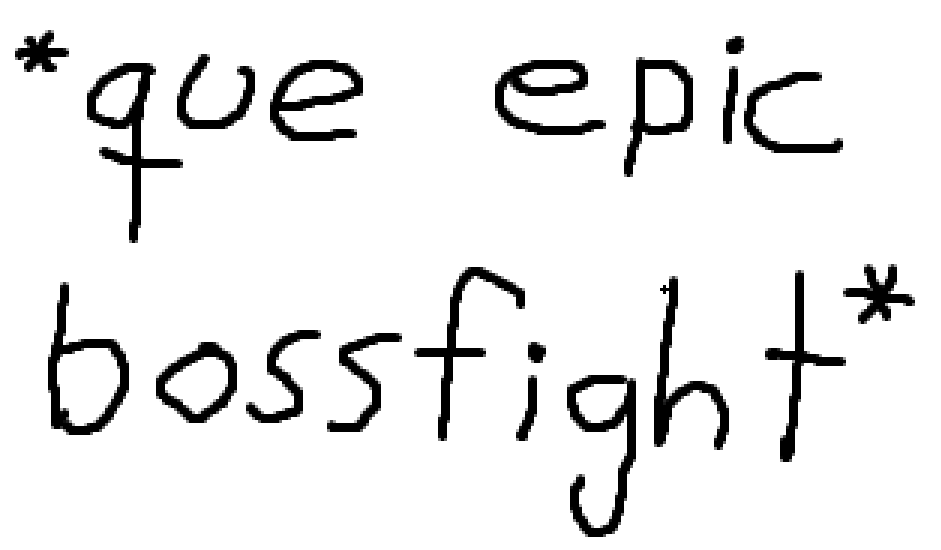 *que epic
bossfight*